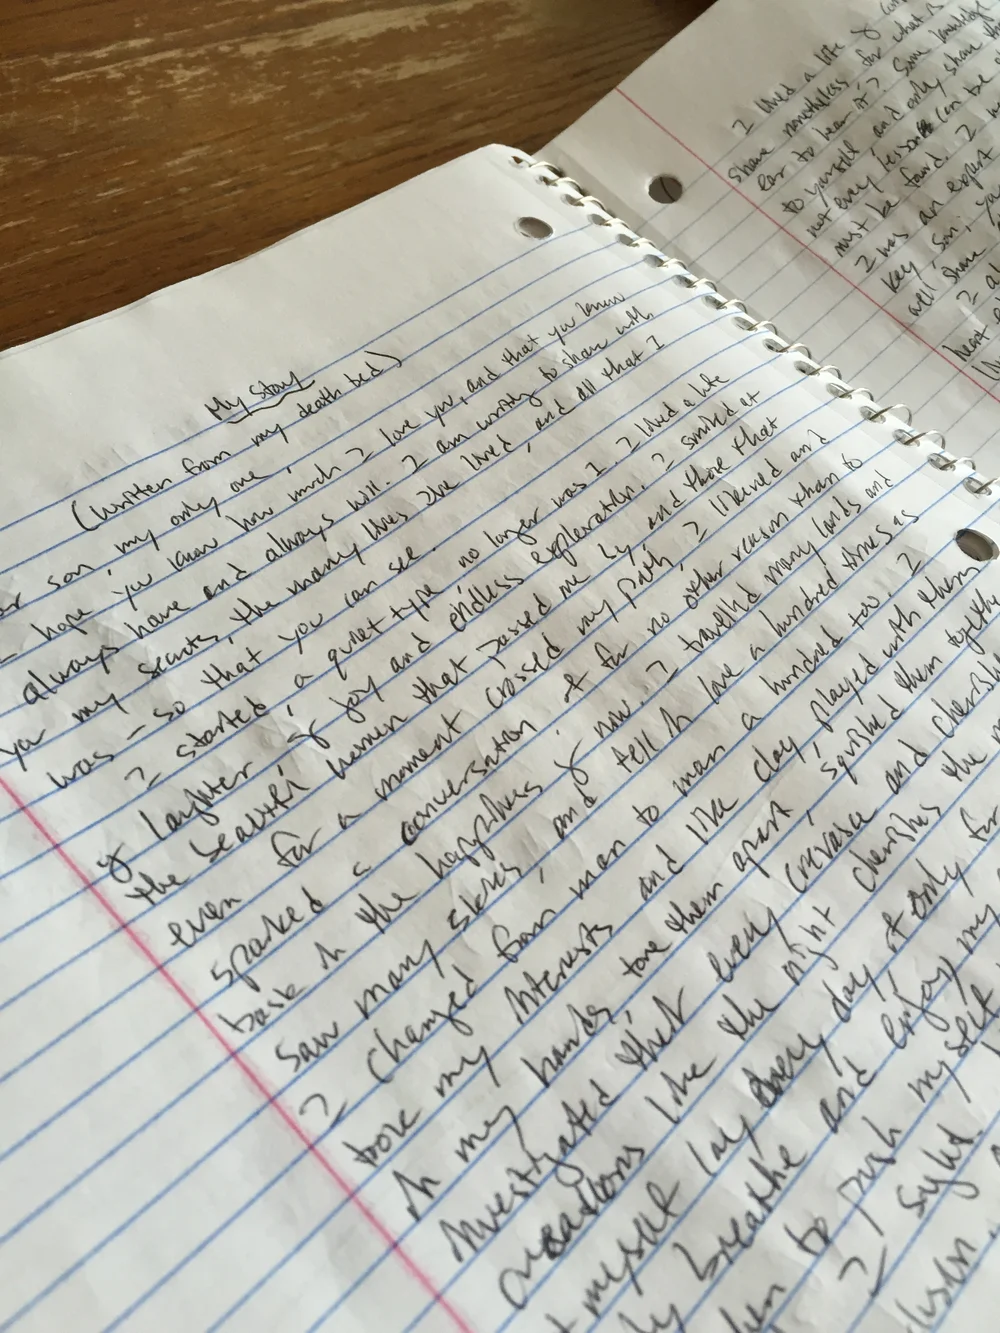 My Story
(written from my death bed)
son, my only one,
hope you know how much I love you, and that you know
always have and always will. I am writing to share with
you my secrets, the many lives I've lived, and all that I
was - so that you can see.
I started, a quiet type, no longer was I. I lived a life
of laughter, of joy and endless exploration. I smiled at
the beautiful women that passed me by, and those that
even for a moment crossed my path, I likened and
sparked a conversation for no other reason than to
bask in the happiness of now. I travelled many lands and
saw many skies, and fell in love a hundred times as
I changed from man to man a hundred too. I
took my interests and like clay, played with them
in my hands, tore them apart, squished them together
investigated their every crevasse and
creations like the night cherishes the
myself lay every day, if only for
breathe and enjoy my
to push myself
I sigh
I lived a life of
share nonetheless, for what
ear to hear of? Some knowledge
to yourself, and only share
not every lesson can be
must be found. I
I was an expert
key, son,
well share
I